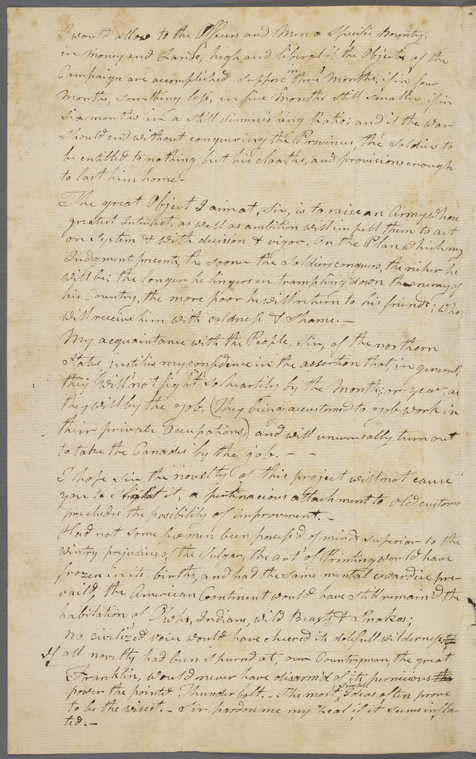 I would allow to the Officers and Men a Specific Bounty;
in Money and Lands, high and liberal if the Objects of the
Campaign are accomplished suppose in three Months, if in four
Months, something less, in five Months still smaller, if in
Six months in a still diminishing Ratio; and if the War
Should end without conquering the Province, the Soldier to
be entitled to nothing but his cloaths, and provisions enough
to last him home.
The great Object I aim at, Sir, is to raise an Army whose
greatest Interest, as well as ambition will impell them to act
on System & with decision & vigor. On the Plan which my
Judgment presents, the sooner the Soldier conquers, the richer he
will be; the longer he lingers in trampling down the enemy of
his Country, the more poor he will return to his friends; who
will receive him with coldness & Shame.—
My acquaintance with the People, Sir, of the northern
States, justifies my confidence in the assertion that in general
they will not fight so heartily by the Month, or year, as
they will by the job. (They being accustomed to job work in
their private Occupations,) and will universally turn out
to take the Canadas by the job. —
I hope Sir the novelty of this project will not cause
you to slight it, a pertinacious attachment to old customs
precludes the posibility of improvment.—
Had not some few men been possess'd of minds superior to the
wintry prejudice of the Vulgar, the art of Printing would have
frozen in its births, and had the same mental cowardice pre-
vail'd, the American Continent would have still remained the
habitation of Owls, Indians, wild Beasts & Snakes;
no civilized voice would have cheered its dolefull wilderness
If all novelty had been spurn'd at, our Countryman, the great
Franklin, would never have disarm'd of its pernicious the
power the pointed Thunderbolt.— The most simple Ideas often prove
to be the wisest.— Sir pardon me my zeal if it seems infla-
ted.—